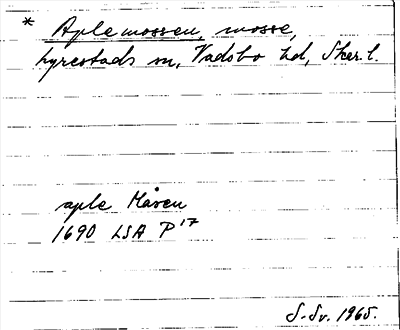 * Aplemossen, mosse,
Lyrestads sn, Vadsbo hd, Skar.l.
aple Måsen
1690 LSA P 17
S-Sv. 1965.